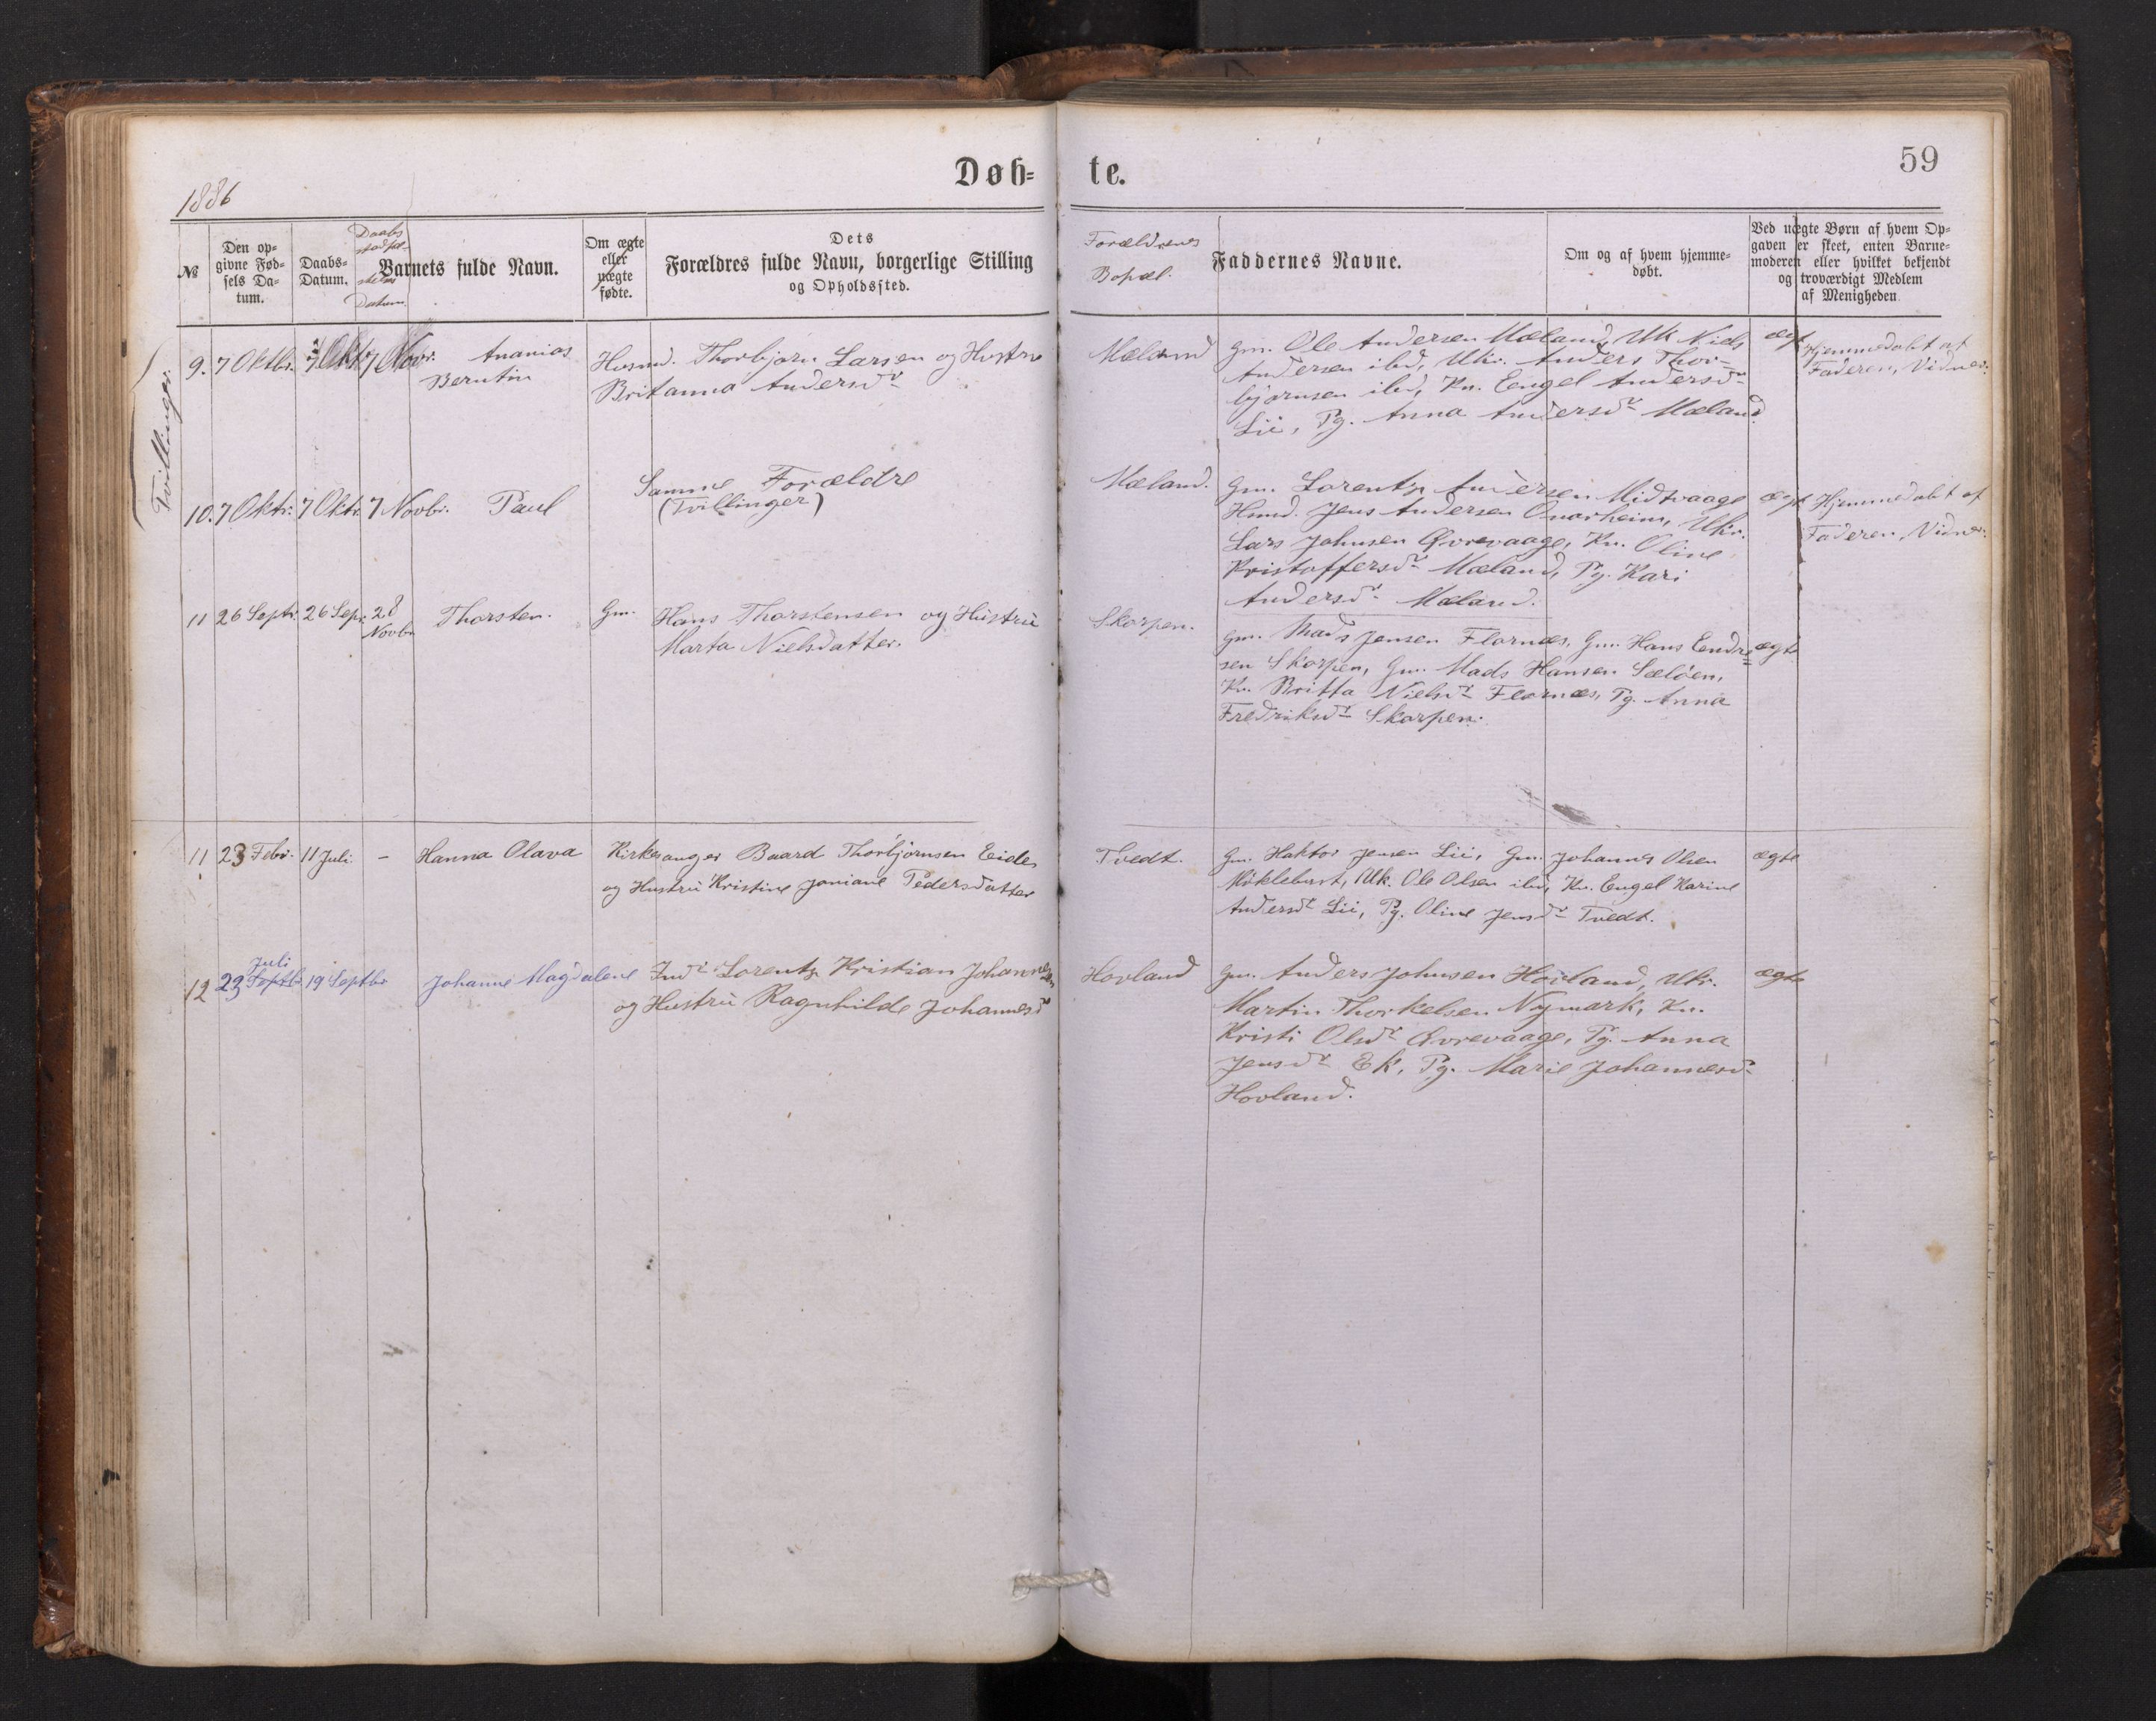 Døb=
te.
59
1886
№
Den op=
givne Fød=
sels Da=
tum.
Daabs=
Datum.
Daabs
Datum
Barnets fulde Navn.
Om ægte
eller
uægte
fødte.
Dets
Forældres fulde Navn, borgerlige Stilling
og Opholdssted.
Forældrenes
Bopæl.
Faddernes Navne.
Om og af hvem hjemme=
døbt.
Ved uægte Børn af hvem Op=
gaven er skeet, enten Barne=
moderen eller hvilket bekjendt
og troværdigt Medlem
af Menigheden.
Tvillinger.
9. 7 Oktbr. 7 Okt. 7 Novr. Ananias
Berntin
Husmd. Thorbjørn Larsen og Hustru
Britanna Andersdr
Mæland
Gm. Ole Andersen Mæland, Uk Niels
Andersen ibd, Ukr. Anders Thor=
bjørnsen ibd, Kn. Engel Andersdr
Lii, Pg. Anna Andersdr Mæland.
ægt
Hjemmedøbt af
Faderen, Vidner:
10. 7 Oktr. 7 Oktr. 7 Novbr. Paul
Samme Forældre
(Tvillinger)
Mæland.
Gm. Lorentz Andersen Midtvaage
Husmd. Jens Andersen Onarheim, Ukr.
Lars Johnsen Øvrevaage, Kn. Oline
Kristoffersdr Mæland, Pg. Kari
Andersdr Mæland.
ægt
Hjemmedøbt af
Faderen, Vidner:
11 26 Septr. 26 Sepr. 28
Novbr
Thorsten.
Gm. Hans Thorstensen og Hustru
Marta Nielsdatter.
Skorpen.
Gm. Mads Jensen Flornæs, Gm. Hans Eendre=
sen Skorpen, Gm. Mads Hansen Sæløen,
Kn. Britta Nielsdr Flornæs, Pg. Anna
Fredriksdr Skorpen.
ægte
11 23 Febr. 11 Juli - Hanna Olava
Kirkesanger Baard Thorbjørnsen Eide
og Hustru Kristine Janiane Pedersdatter
Tvedt.
Gm. Haktor Jensen Lii, Gm. Johannes Olsen
Møklebust, Uk. Ole Olsen ibd, Kn. Engel Karine
Andersdr Lii, Pg. Oline Jensdr Tvedt.
ægte
Juli
12 23 Septbr 19 Septbr Johanne Magdalene
Indr Lorentz Kristian Johannessen
og Hustru Ragnhilde Johannesdr
Hovland
Gm. Anders Johnsen Hovland, Ukr.
Martin Thorkelsen Nymark, Kn.
Kristi Olsdr Øvrevaage, Pg. Anna
Jensdr Ek, Pg. Marie Johannesdr
Hovland.
ægte